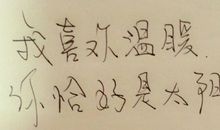 我喜欢温暖.
你恰好是太阳